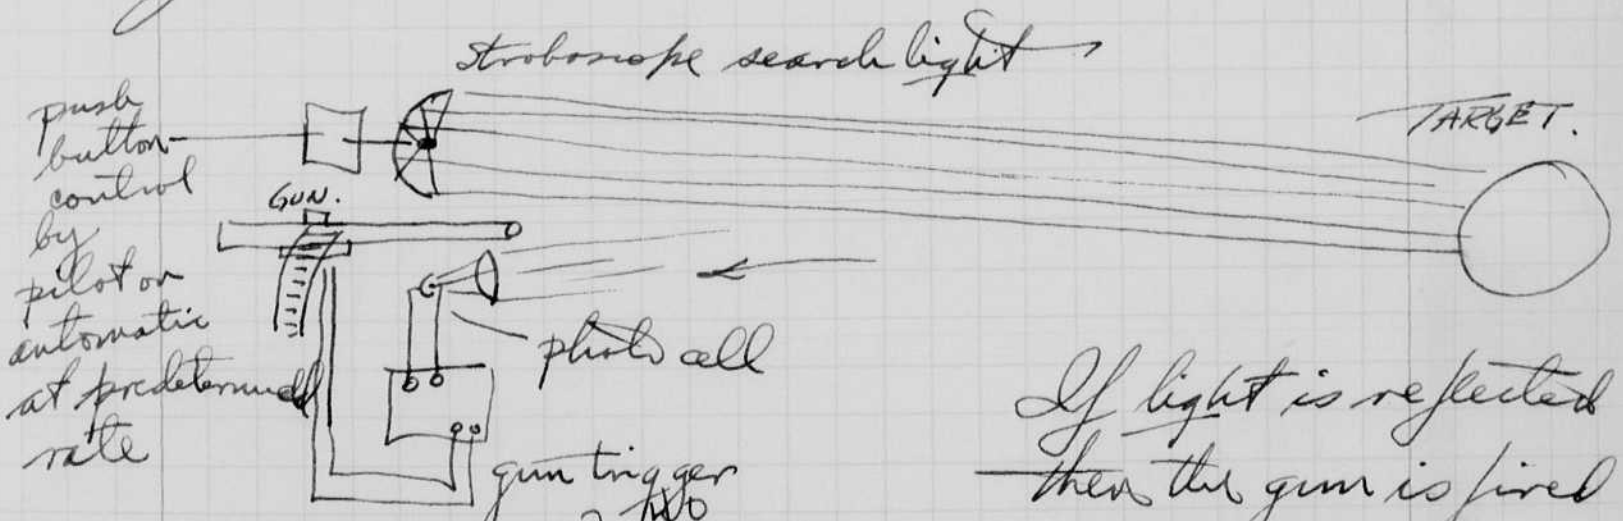 Stroboscope search light
push
button
control
by
pilot or
automatic
at predetermined
rate
GUN.
TARGET.
photo cell
gun trigger
If light is reflected
then the gun is fired